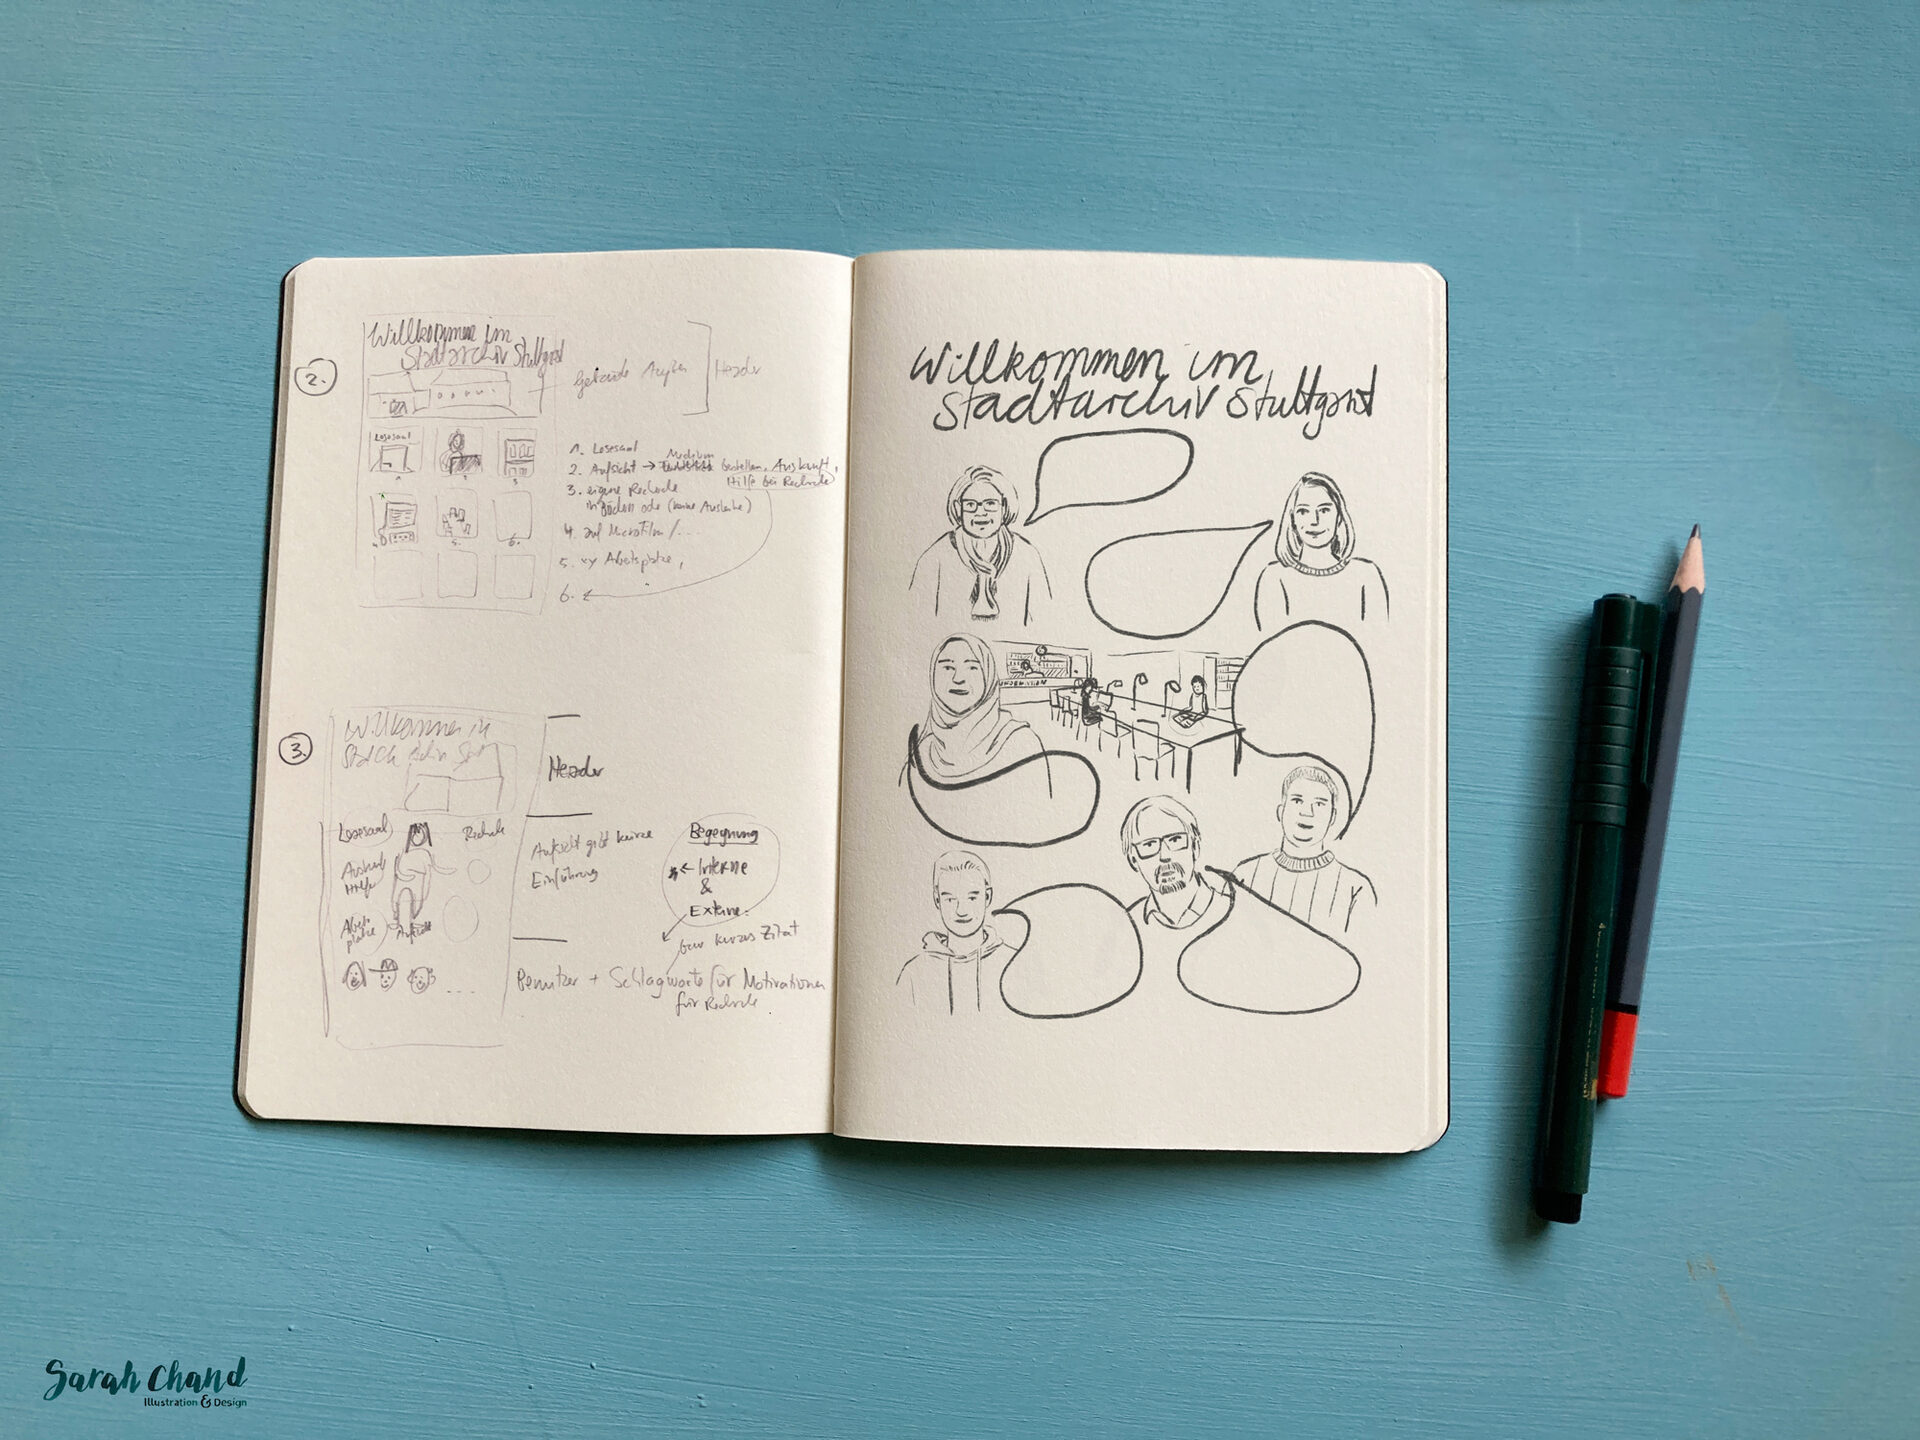 2.
Willkommen im
Stadtarchiv Stuttgart
Header
Lesesaal
1. Lesesaal
Medium
2. Aufsicht → bestellen, Auskunft,
Hilfe bei Recherche
3. eigene Recherche
in Büchern oder (keine Ausleihe)
4. auf Microfilm / ...
5. xy Arbeitsplätze,
6.
3.
Willkommen im
Header
Lesesaal
Recherche
Aufsicht gibt kurze
Einführung
Hilfe
Arbeits-
plätze
Aufsicht
Begegnung
Interne
&
Externe
kurzes Zitat
...
Benutzer + Schlagworte für Motivationen
für Recherche
Willkommen im
Stadtarchiv Stuttgart
INFORMATION
Sarah Chand
Illustration & Design